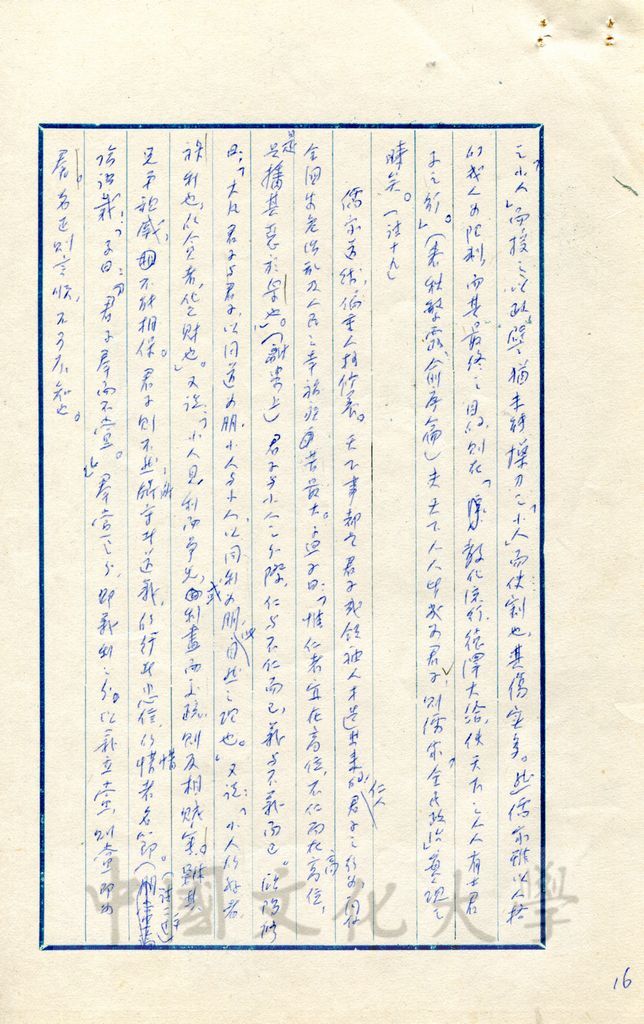 之小人」而授之以政，譬「猶未能操刀之小人」而使割也，其傷實多。此儒家雖以人格
的成人为限制，而其最終之目的，則在「教化流行，德澤大洽，使天下之人人有士君
子之行」（春秋繁露俞序篇）夫天下人人皆成为君子，则儒家「全民政治」實現之
時矣。（註十九）
儒家道統，偏重人格修養。天下事都是君子或領袖人才造出來的，仁人君子之行为
全國安危治乱及人民之幸福 最大。孟子曰：「惟仁者宜在高位，不仁而在高位，
是播其惡於眾也」。（離婁上）君子与小人之分際，仁与不仁而已，義与不義而已。歐陽修
曰：「大凡君子与君子，以同道为朋，小人与小人，以同利为朋，此自然之理也。」又說：「小人所好者
祿利也，所貪者，貨財也」。又說：「小人見利而爭先，或利盡而交疏，則反相賊害，雖其
兄弟親戚，不能相保。君子則不然，所守者道義，所行者忠信，所惜者名節（朋黨論）
論語載：「子曰：『君子羣而不黨。』」羣黨之分，即義利之分。以義立黨，則黨即为
羣，名正則言順，不可不知也。
中國文化大學
16